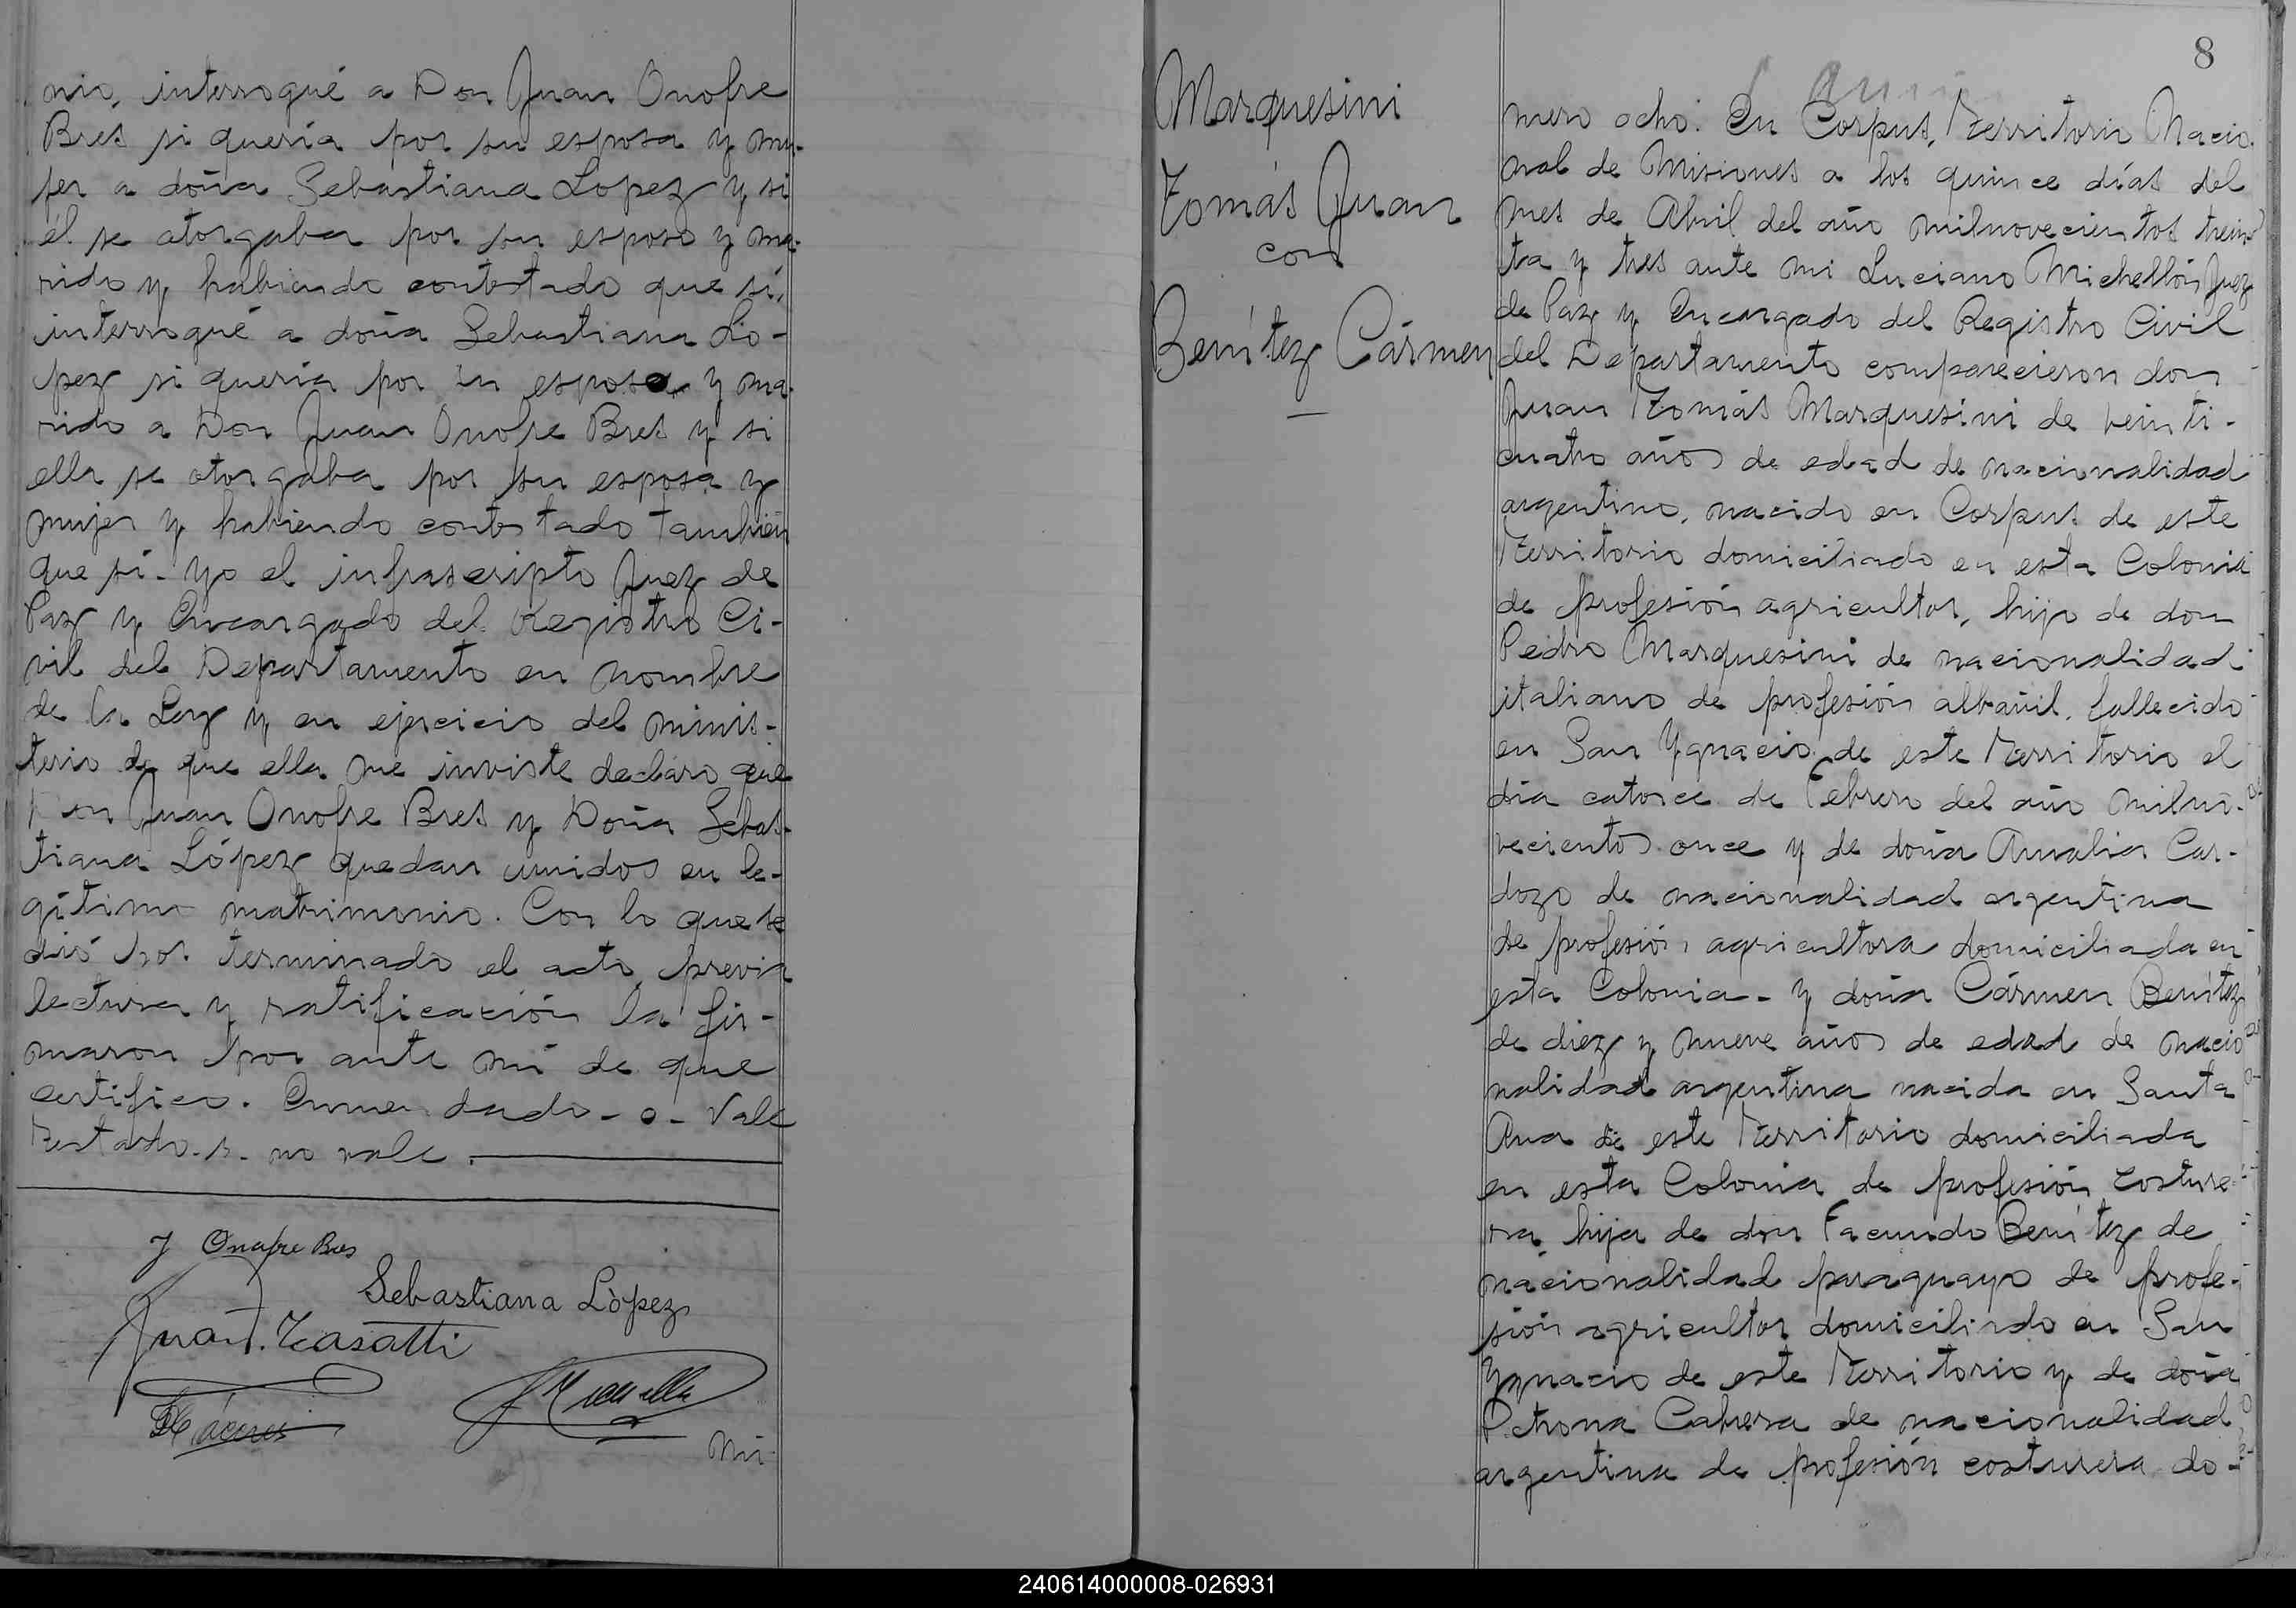 nio, interrogué a Don Juan Onofre
Bres si quería por su esposa y mu-
jer a doña Sebastiana Lopez y si
él se otorgaba por su esposo y ma-
rido y habiendo contestado que sí,
interrogué a doña Sebastiana Ló-
pez si quería por su esposo y ma-
rido a Don Juan Onofre Bres y si
ella se otorgaba por su esposa y
mujer y habiendo contestado también
que sí - Yo el infrascripto Juez de
Paz y Encargado del Registro Ci-
vil del Departamento en nombre
de la Ley y en ejercicio del minis-
terio de que ella me inviste declaro que
Don Juan Onofre Bres y Doña Sebas-
tiana López quedan unidos en le-
gítimo matrimonio. Con lo que se
dió por terminado el acto, previa
lectura y ratificación la fir-
maron por ante mí de que
certifico. Enmendado - o - Vale
Testado - s - no vale.
J Onofre Bres
Sebastiana Lòpez
Juan
Cáceres
Nú-
Marquesini
Tomás Juan
con
Benítez Cármen
8
mero ocho: En Corpus, Territorio Nacio-
nal de Misiones a los quince días del
mes de Abril del año milnovecientos trein-
ta y tres ante mi Luciano Michellón Juez
de Paz y Encargado del Registro Civil
del Departamento comparecieron don
Juan Tomás Marquesini de veinti-
cuatro años de edad de nacionalidad
argentino, nacido en Corpus de este
Territorio domiciliado en esta Colonia
de profesión agricultor, hijo de don
Pedro Marquesini de nacionalidad
italiano de profesión albañil, fallecido
en San Ygnacio de este Territorio el
día catorce de Febrero del año milno-
vecientos once y de doña Amalia Car-
dozo de nacionalidad argentina
de profesión agricultora domiciliada en
esta Colonia - y doña Cármen Benítez
de diez y nueve años de edad de nacio
nalidad argentina nacida en Santa
Ana de este Territorio domiciliada
en esta Colonia de profesión costure-
ra, hija de don Facundo Benítez de
nacionalidad paraguayo de profe-
sión agricultor domiciliado en San
Ygnacio de este Territorio y de doña
Petrona Cabrera de nacionalidad
argentina de profesión costurera do-
240614000008-026931